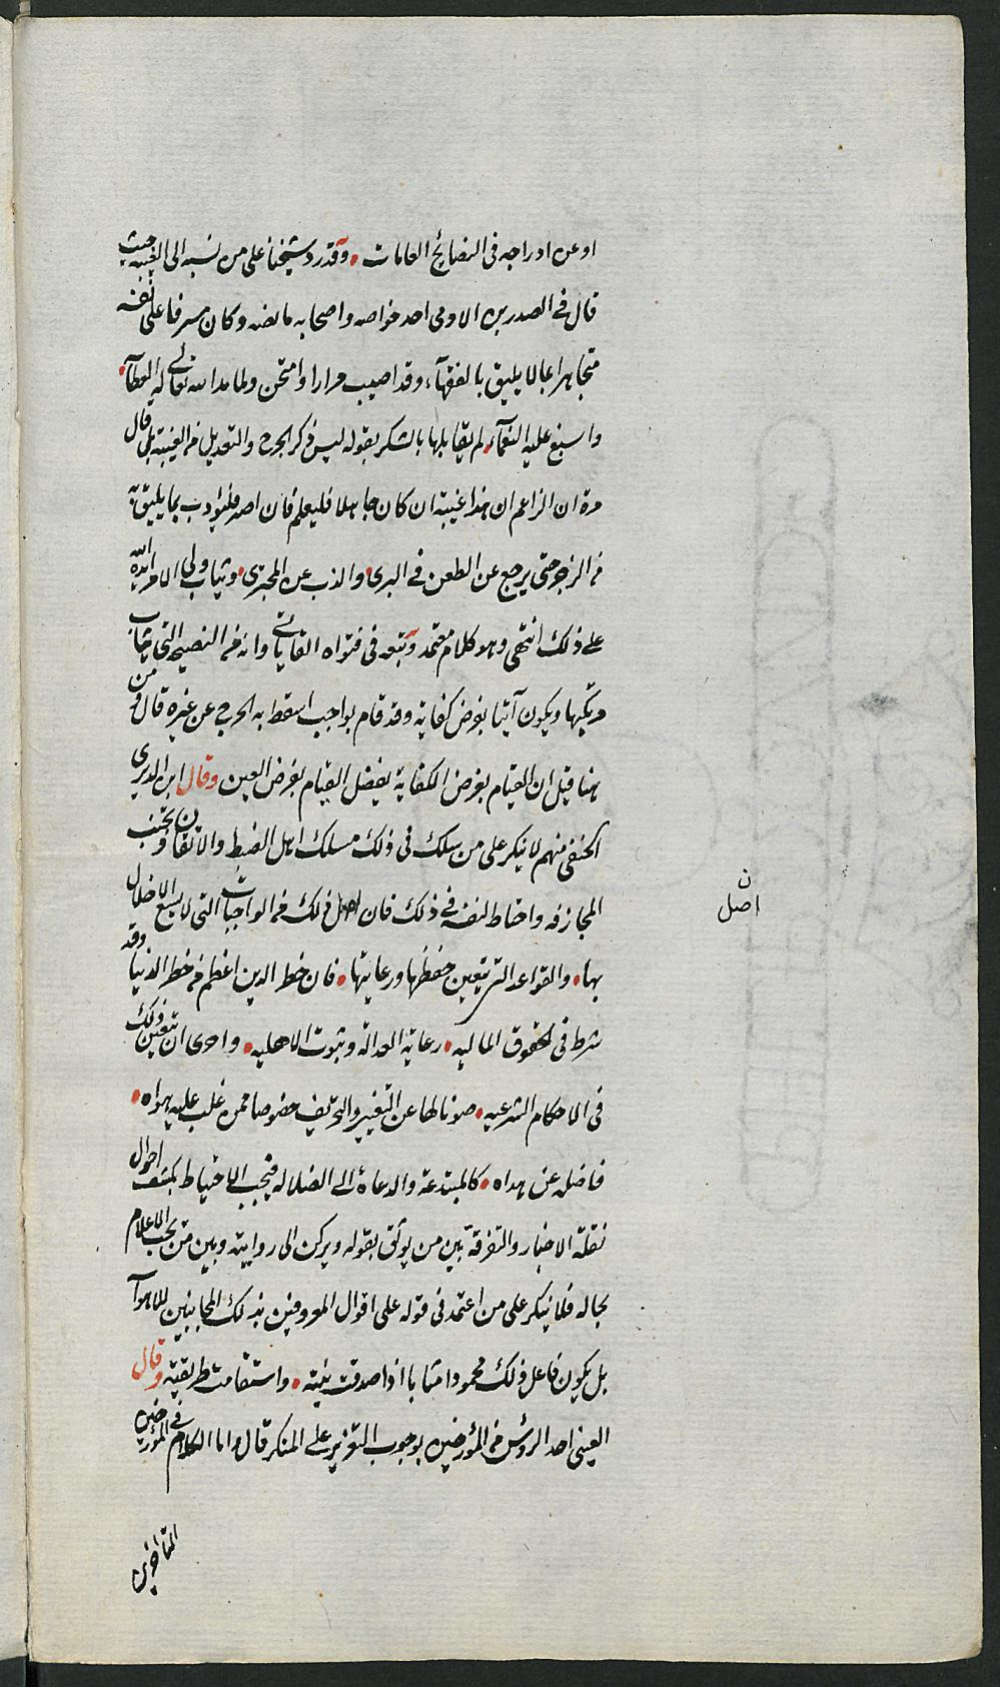 او عن ادراجه فى النصائح العامات . وقد رد شيخنا على من نسبه الى الغيبة حيث
قال فى الصدر بن الاومى احد خواصه واصحابه مانصه وكان مسرفا على نفسه
متجاهرا بما لا يليق بالفقهآء وقد اصيب مرارا وامتحن ولما مد الله تعالى له العطآء .
واسبغ عليه النعمآء . لم يقابلها بالشكر بقوله ليس ذكر الجرح والتعديل من الغيبة بل قال
مرة ان الزاعم ان هذا غيبة ان كان جاهلا فليعلم فان اصر فليؤدب بما يليق به
من الزجر حتى يرجع عن الطعن فى البرى . والذب عن المجترى . ويثاب ولى الامر ايده الله
على ذلك انتهى وهو كلام معتمد وتبعه فى فتواه القاياتى وانه من النصيحة التى يثاب
مرتكبها ويكون آتيا بفرض كفاية وقد قام بواجب اسقط به الحرج عن غيره قال ومن
هنا قيل ان القيام بفرض الكفاية يفضل القيام بفرض العين وقال ابن الديرى
الحنفى منهم لا ينكر على من سلك فى ذلك مسلك اهل الضبط والاتقان وتجنب
المجازفه واحتاط لنفسه فى ذلك فان اصل ذلك من الواجبات التى لا يسع الاخلال
بها . والقواعد التى يتعين حفظها ورعايتها . فان خطر الدين اعظم من خطر الدنيا وقد
شرط فى الحقوق المالية . رعاية العدالة وثبوت الاهلية . واحرى ان يتعين ذلك
فى الاحكام الشرعيه . صونا لها عن التغيير والتحريف خصوصا ممن غلب عليه هواه .
فاضله عن هداه . كالمبتدعة والدعاة الى الضلالة فيجب الاحتياط بكشف احوال
نقلة الاخبار والتفرقة بين من يوثق بقوله ويركن الى روايته وبين من يجب الاعلام
بحاله فلا ينكر على من اعتمد فى قوله على اقوال المعروفين بذلك المجانبين للاهوآء
بل يكون فاعل ذلك محمودا مثابا اذا صدقت نيته . واستقامت طريقته وقال
العينى احد الرؤس من المؤرخين بوجوب التعزير على المنكر قال واما الكلام فى المؤرخين
المتأخرين
ن
اصل